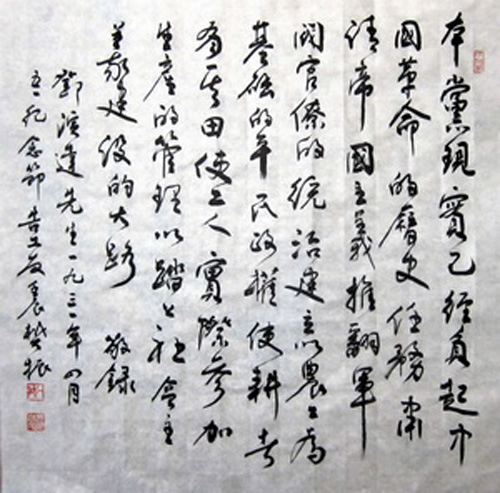 本黨現實已经負起中
國革命的曆史任務肅
清帝國主義推翻軍
閥官僚的统治建立以農工為
基础的平民政權使耕者
有其田使工人實際參加
生産的管理以踏上社會主
義建设的大路 敬録
鄧演達先生一九三一年四月
五一纪念節告工友農樊振